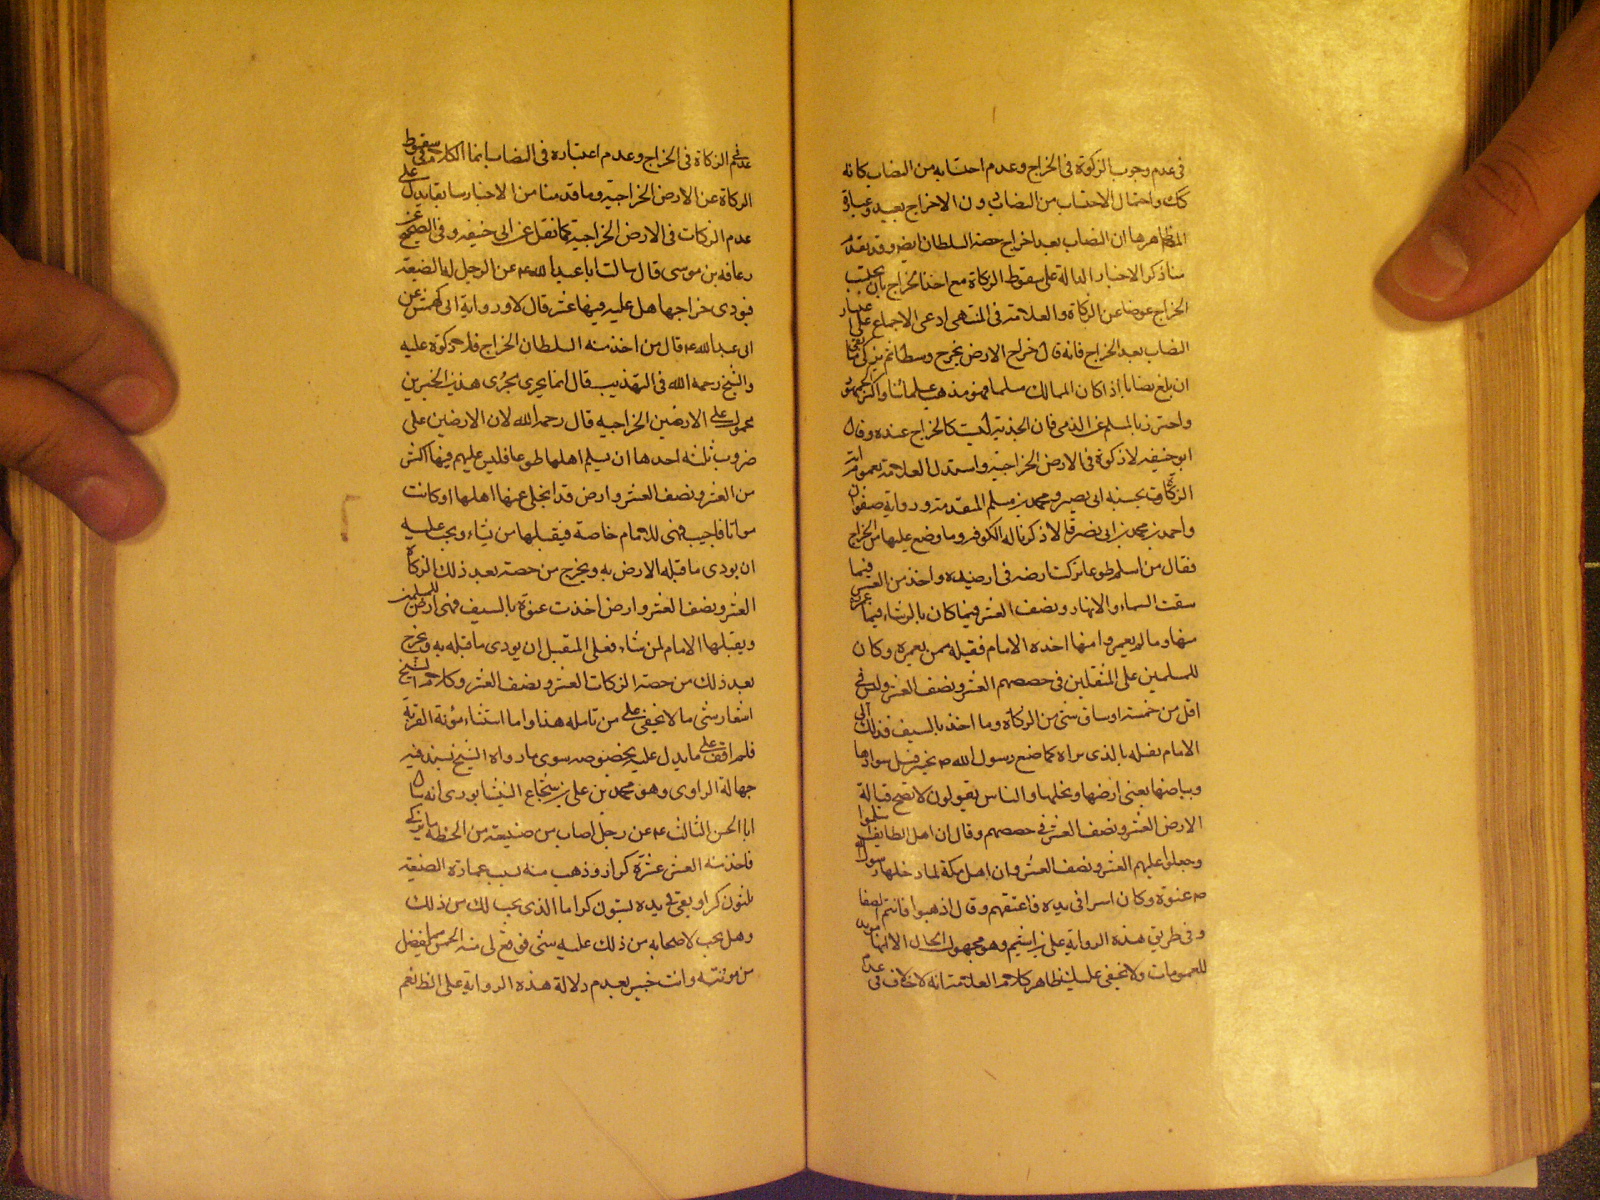 فى عدم وجوب الزكوة فى الخراج وعدم احتسابه من النصاب كانه
كك واحتمال الاحتساب من النصاب دون الاخراج بعيد وعبارة
ظاهرها ان النصاب بعد اخراج حصة السلطان ايضا وقد يعد
هنا ذكر الاخبار الدالة على سقوط الزكاة مع اخذ الخراج بان يحتسب
الخراج عوضا عن الزكاة والعلامة فى المنتهى ادعى الاجماع على اعتبار
النصاب بعد الخراج فانه قال خراج الارض يخرج وسطا ثم يزكى ما بقى
ان بلغ نصابا اذا كان المالك مسلما وهو مذهب علمائنا واكثر الجمهور
واحترز بالمسلم عن الذمى فان الجزية ليست كالخراج عنده وقال
ابو حنيفه لا زكوة فى الارض الخراجية واستدل العلامة بعموم
الزكاة وبحسنة ابى بصير ومحمد بن مسلم المتقدمة ورواية صفوان
واحمد بن محمد بن ابى نصر قالا ذكرنا له الكوفه وما وضع عليها من الخراج
فقال من اسلم طوعا تركت ارضه فى ارضيده واخذ من العشر فيما
سقت السماء والانهار ونصف العشر فيما كان بالرشاء فيما عمروه
منها وما لم يعمروا منها اخذه الامام فقبله ممن يعمره وكان
للمسلمين على المتقبلين فى حصصهم العشر ونصف العشر وليس فى
اقل من خمسة اوساق شئ من الزكاة وما اخذ بالسيف فذلك الى
الامام يقبله بالذى يراه كما صنع رسول الله ص بخيبر قبل سوادها
وبياضها يعنى ارضها ونخلها والناس يقولون لا تصح قبالة
الارض العشر ونصف العشر فى حصصهم وقال ان اهل الطايف اسلموا
وجعلوا عليهم العشر ونصف العشر وان اهل مكة لما دخلها رسول الله
ص عنوة وكان اسرا فى يده فاعتقهم وقال اذهبوا فانتم
وفى طريق هذه الرواية على بن اشيم وهو مجهول الحال الا انها مويد
للعمومات ولا يخفى عليك ان ظاهر كلام العلامة انه لا خلاف فى عدم
عدم الزكاة فى الخراج وعدم اعتباره فى النصاب انما الكلام فى سقوط
الزكاة عن الارض الخراجية وما قدمنا من الاخبار سابقا يدل على
عدم الزكات فى الارض الخراجية كما نقل عن ابى حنيفه وفى الصحيح عن
رفاعه بن موسى قال سالت ابا عبد الله ع عن الرجل له الضيعة
فيودى خراجها هل عليه فيها عشر قال لا ورواية ابى كهمش عن
ابى عبد الله ع قال من اخذ منه السلطان الخراج فلا زكوة عليه
والشيخ رحمه الله فى التهذيب قال انما يجرى مجرى هذين الخبرين
محمول على الارضين الخراجيه قال رحمه الله لان الارضين على
ضروب ثلثه احدها ان يسلم اهلها طوعا فليس عليهم فيها اكثر
من العشر ونصف العشر وارض قد انجلى عنها اهلها او كانت
مواتا فاحييت فهى للامام خاصة فيقبلها من شاء ويجب عليه
ان يودى ما قبله الارض به ويخرج من حصته بعد ذلك الزكاة
العشر ونصف العشر وارض اخذت عنوة بالسيف فهى ارض للمسلمين
ويقبلها الامام لمن شاء فعلى المتقبل ان يودى ما قبله به ويخرج
بعد ذلك من حصته الزكات العشر ونصف العشر وكلام الشيخ
اشعار شئ ما لا يخفى على من تامله هذا واما استثناء مؤنة القرية
فلم اقف على ما يدل عليه بخصوصه سوى ما رواه الشيخ بسند فيه
جهالة الراوى وهو محمد بن على بن شجاع النيشابورى انه سال
ابا الحسن الثالث ع عن رجل اصاب من ضيعته من الحنطة ما يزكى
فاخذ منه العشر عشرة كرار وذهب منه بسبب عمارة الضيعة
ثلثون كرا وبقى فى يده ستون كرا ما الذى يجب لك من ذلك
وهل يجب لاصحابه من ذلك عليه شئ فوقع لى منه الخمس مما يفضل
من مونته وانت خبير بعدم دلالة هذه الرواية على المط نعم